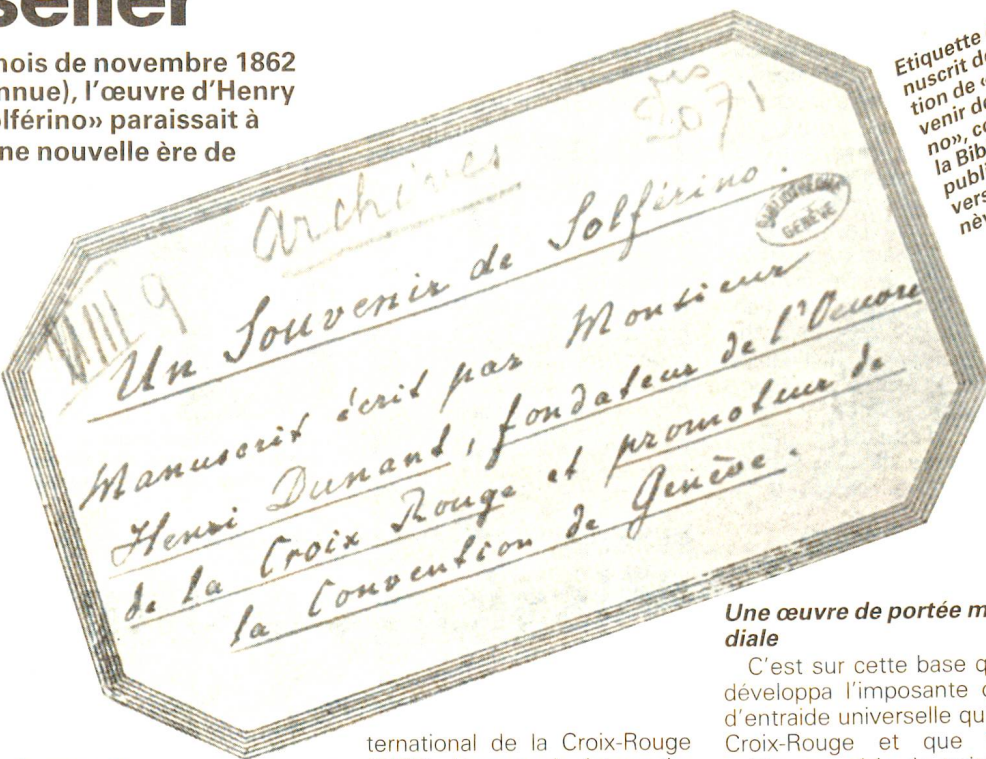 seller
nois de novembre 1862
nnue), l'œuvre d'Henry
olférino» paraissait à
ne nouvelle ère de
Etiquette
nuscrit de
tion de «
venir de
no», co
la Bib
publi
vers
nèv
ms
2071
Archives
VIII 9
Un Souvenir de Solférino.
BIBLIOTHEQUE
GENÈVE
Manuscrit écrit par Monsieur
Henri Dunant, fondateur de l'Oeuvre
de la Croix Rouge et promoteur de
la Convention de Genève.
ternational de la Croix-Rouge
Une œuvre de portée m
diale
C'est sur cette base q
développa l'imposante
d'entraide universelle qu
Croix-Rouge et que